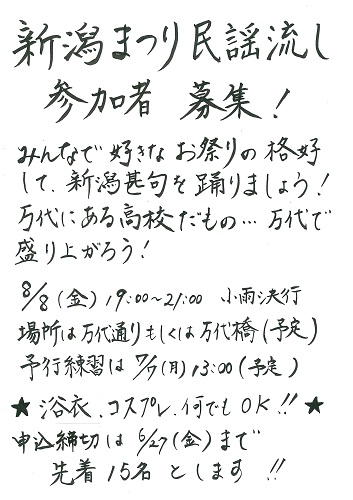 新潟まつり民謡流し
参加者 募集!
みんなで好きなお祭りの格好
して、新潟甚句を踊りましょう!
万代にある高校だもの…万代で
盛り上がろう!
8/8(金) 19:00~21:00 小雨決行
場所は万代通りもしくは万代橋(予定)
予行練習は 7/7(月) 13:00(予定)
★ 浴衣、コスプレ、何でもOK!! ★
申込締切は 6/27(金)まで
先着15名とします!!